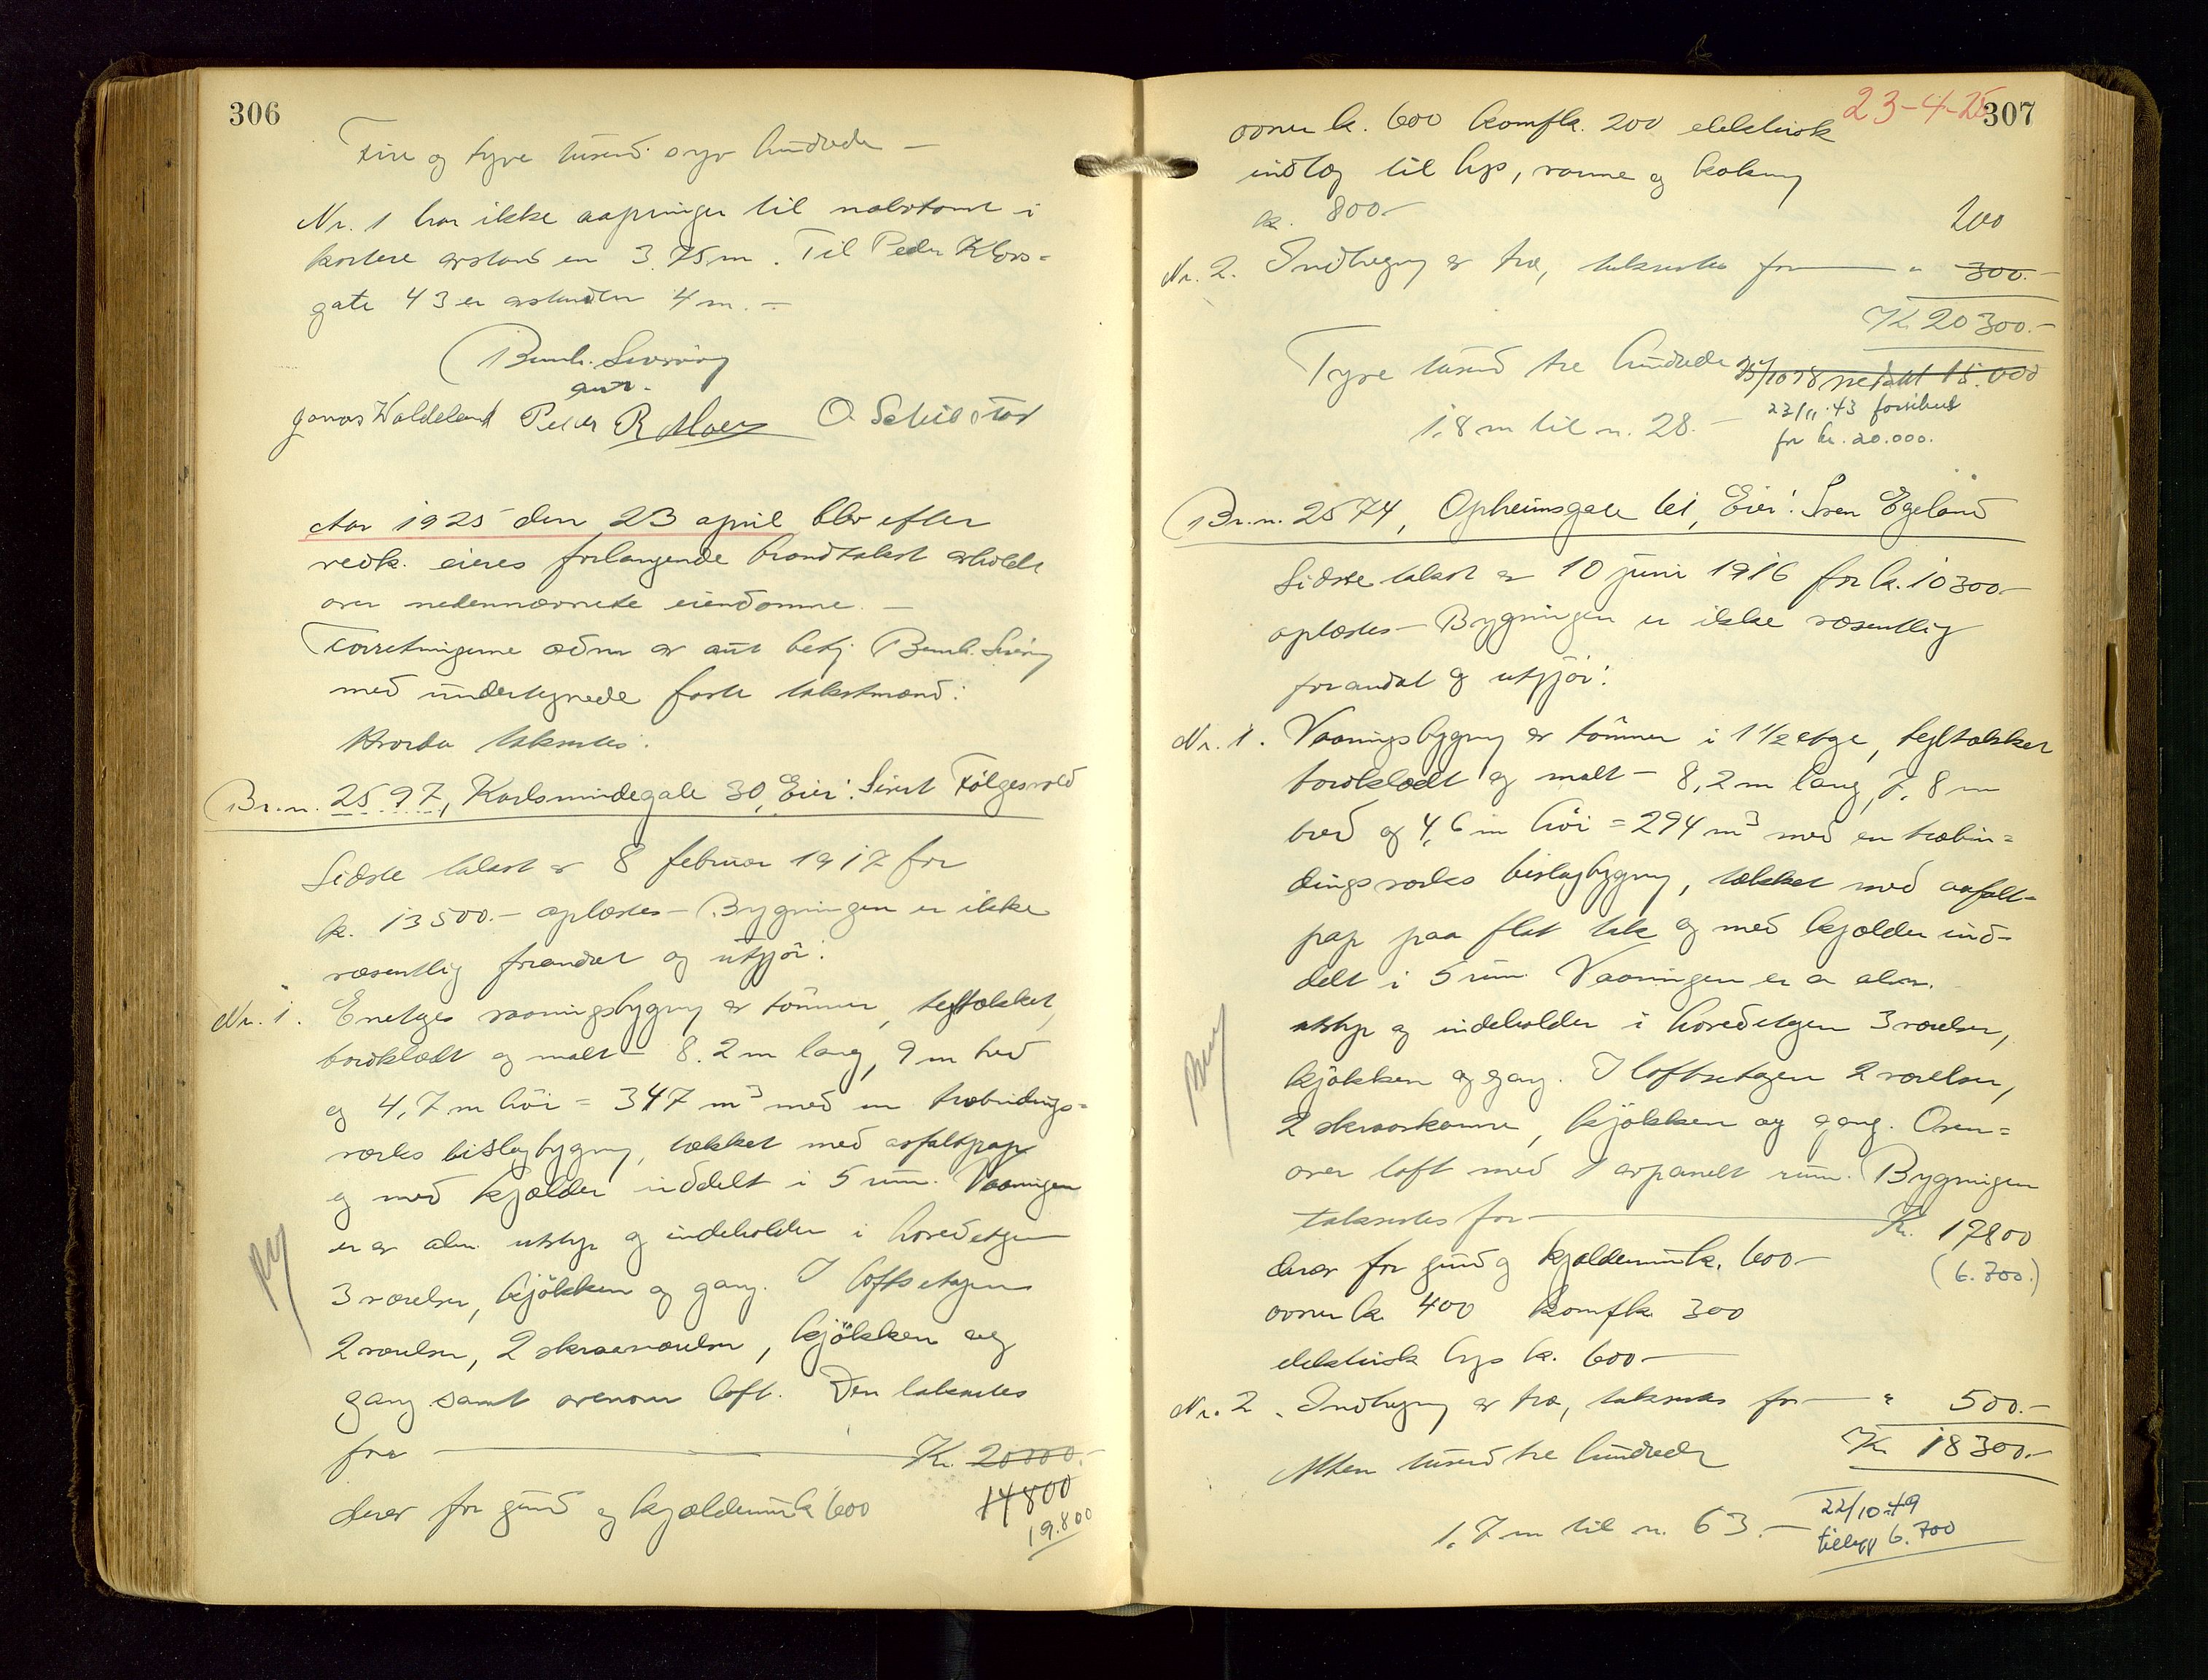 306
Fire og tyve tusend syv hundrede —
Nr. 1 har ikke aapninger til nabotomt i
kortere avstand en 3.75 m. Til Peder Klows=
gate 43 er avstanden 4 m. —
Bernh.
aut.
Jonas Waldeland Peder R Moe O. Schibstad
Aar 1925 den 23 april blev efter
vedk. eieres forlangende brandtakst avholdt
over nedennævnte eiendomme. —
Forretningerne adm av aut bestyr Bernh.
med undertegnede faste takstmænd:
Hvorda takseredes:
Br.n. 2597, Karlsmindegate 30, Eier: Sivert Følgesvold
Sidste takst av 8 februar 1917 for
k. 13500.- oplæstes - Bygningen er ikke
væsentlig forandret og utgjør:
Nr. 1. Enetges vaaningsbygng av tømmer, teglstækket,
bordklædt og malt - 8.2 m lang, 9 m bred
og 4,7 m høi = 347 m³ med en træbindings=
verks bislagbygng, tækket med asfaltpap
og med kjælder inddelt i 5 rum. Vaaningen
er av alm. utstyr og indeholder i hovedetgen
3 værelser, kjøkken og gang. I loftsetagen
2 værelser, 2 skraaværelser, kjøkken og
gang samt ovenover loft. Den takseredes
for — Kr. 20000.-
14800
19.800
derav for grund og kjælderrum k 600
23-4-25
307
ovner k. 600 komf k. 200 elektrisk
indlæg til lys, varme og kokning
k. 800.-
200
Nr. 2. Indhegng av træ, takseredes for — " 300.-
Kr 20300.-
Tyve tusend tre hundrede
25/10 38 nedsatt 15.000
1.8 m til n. 28. —
23/11.43 forsikret
for kr. 20.000.
Br.n. 2574, Opheimsgate 61, Eier: Sven Egeland
Sidste takst av 10 juni 1916 for k. 10300.-
oplæstes - Bygningen er ikke væsentlig
forandret og utgjør:
Nr. 1. Vaaningsbygng av tømmer i 1 1/2 etge, tegltækket
bordklædt og malt - 8,2 m lang, 7,8 m
bred og 4,6 m høi = 294 m³ med en træbin=
dingsverks bislagbygng, tækket med asfalt=
pap paa flat tak og med kjælder ind-
delt i 5 rum. Vaaningen er av alm.
utstyr og indeholder i hovedetgen 3 værelser,
kjøkken og gang. I loftsetagen 2 værelser,
2 skraaskamre, kjøkken og gang. Oven=
over loft med 1 avpanelt rum. Bygningen
takseredes for — Kr. 17800
derav for grund og kjælderrum k. 600 -
(6.700.)
ovner k. 400 komf k. 300
elektrisk lys k. 600 -
Nr. 2. Indhegng av træ, takseredes for — " 500.-
Kr 18300.-
Atten tusend tre hundrede
1.7 m til n. 63. —
22/10.49
tillegg 6.700